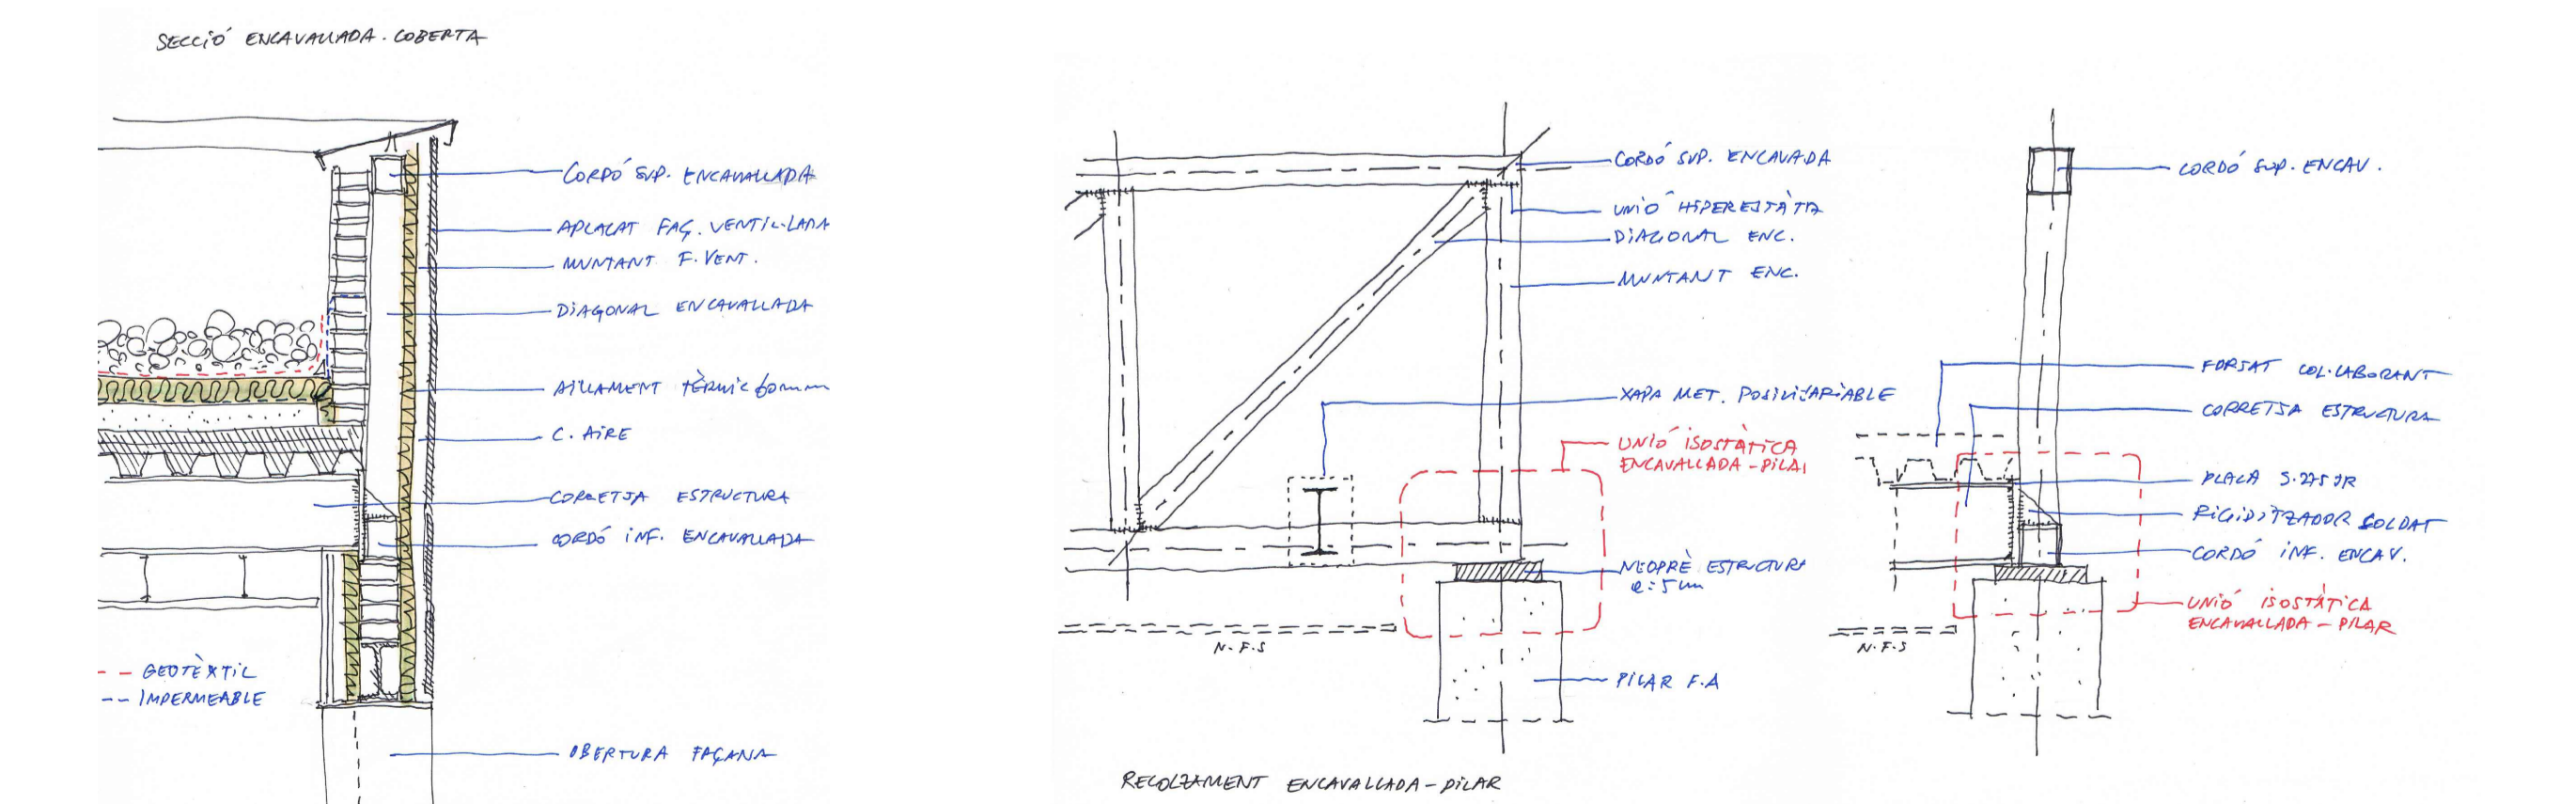 SECCIÓ ENCAVALLADA. COBERTA
CORDÓ SUP. ENCAVALLADA
APLACAT FAÇ. VENTIL·LADA
MUNTANT F. VENT.
DIAGONAL ENCAVALLADA
AÏLLAMENT TÈRMIC 60mm
C. AIRE
CORRETJA ESTRUCTURA
CORDÓ INF. ENCAVALLADA
GEOTÈXTIL
IMPERMEABLE
OBERTURA FAÇANA
CORDÓ SUP. ENCAVADA
UNIÓ HIPERESTÀTI
DIAGONAL ENC.
MUNTANT ENC.
XAPA MET.
UNIÓ ISOSTÀTICA
ENCAVALLADA - PILA
NEOPRÈ ESTRUCTURA
e: 5 cm
N.F.S
PILAR F.A
RECOLZAMENT ENCAVALLADA - PILAR
CORDÓ SUP. ENCAV.
FORJAT COL·LABORANT
CORRETJA ESTRUCTURA
PLACA S.275 JR
RIGIDITZADOR SOLDAT
CORDÓ INF. ENCAV.
UNIÓ ISOSTÀTICA
ENCAVALLADA - PILAR
N.F.S